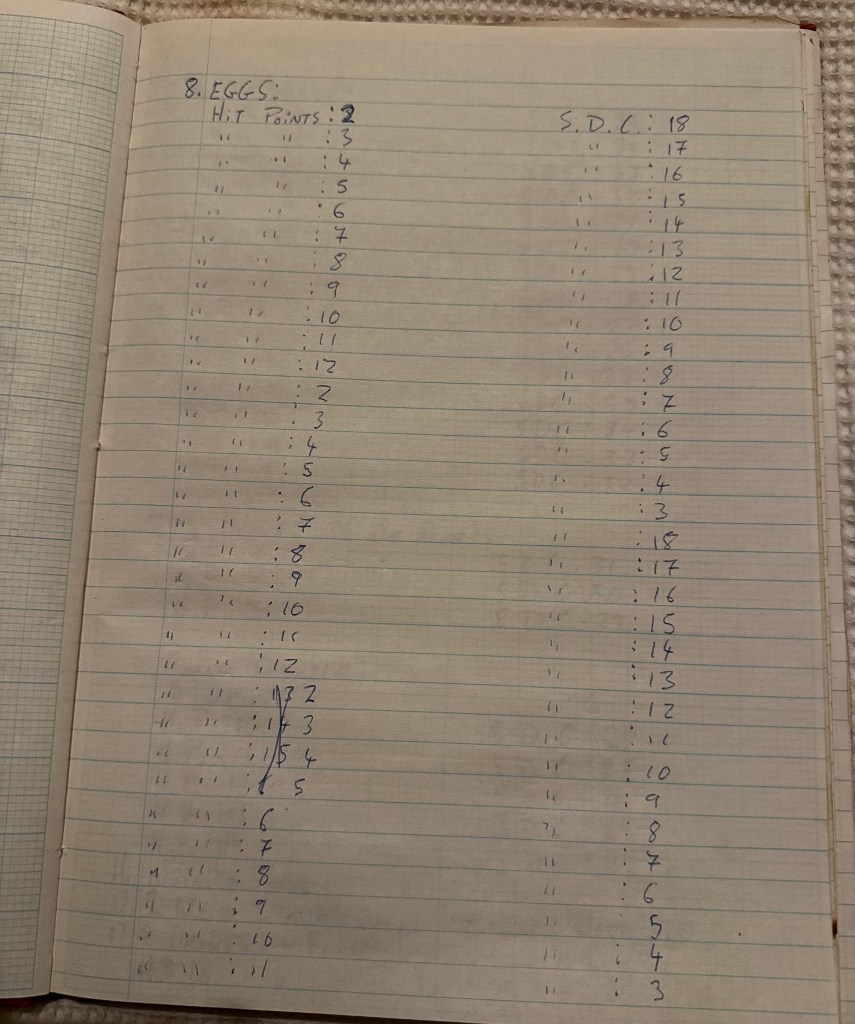 8. EGGS:
HIT POINTS : 2 S. D. C. : 18
" " : 3 " : 17
" " : 4 " : 16
" " : 5 " : 15
" " : 6 " : 14
" " : 7 " : 13
" " : 8 " : 12
" " : 9 " : 11
" " : 10 " : 10
" " : 11 " : 9
" " : 12 " : 8
" " : 2 " : 7
" " : 3 " : 6
" " : 4 " : 5
" " : 5 " : 4
" " : 6 " : 3
" " : 7 " : 18
" " : 8 " : 17
" " : 9 " : 16
" " : 10 " : 15
" " : 11 " : 14
" " : 12 " : 13
" " : 13 2 " : 12
" " : 14 3 " : 11
" " : 15 4 " : 10
" " : 5 " : 9
" " : 6 " : 8
" " : 7 " : 7
" " : 8 " : 6
" " : 9 " 5
" " : 10 " : 4
" " : 11 " : 3